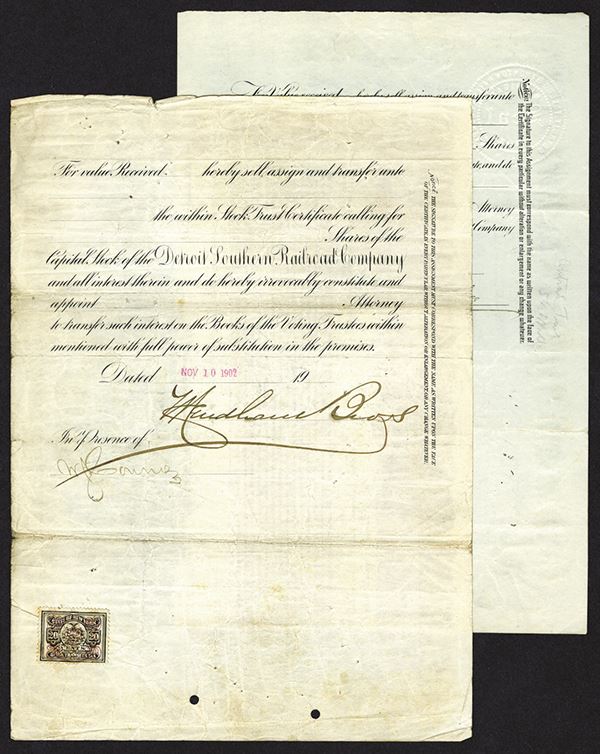 For value Received hereby sell, assign and transfer unto
the within Stock Trust Certificate calling for
Shares of the
Capital Stock of the Detroit Southern Railroad Company
and all interest therein and do hereby irrevocably constitute and
appoint Attorney
to transfer such interest on the Books of the Voting Trustees within
mentioned with full power of substitution in the premises.
Dated NOV 10 1902 19
Bros
In Presence of
NOTICE. THE SIGNATURE TO THIS ASSIGNMENT MUST CORRESPOND WITH THE NAME AS WRITTEN UPON THE FACE
OF THE CERTIFICATE, IN EVERY PARTICULAR WITHOUT ALTERATION OR ENLARGEMENT OR ANY CHANGE WHATEVER.
hereby sell, assign and transfer unto
Shares
Attorney
Company
Notice: The Signature to this Assignment must correspond with the name as written upon the face of
the Certificate in every particular without alteration or enlargement or any change whatever.
STATE OF NEW YORK
20 20